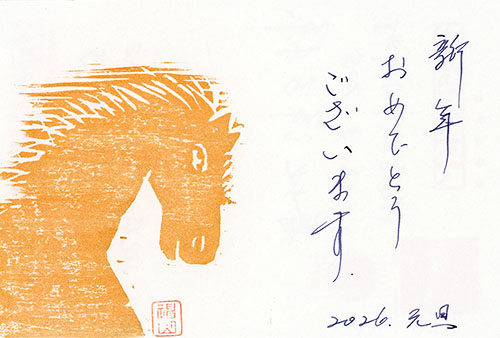 新年
おめでとう
ございます.
2026. 元旦